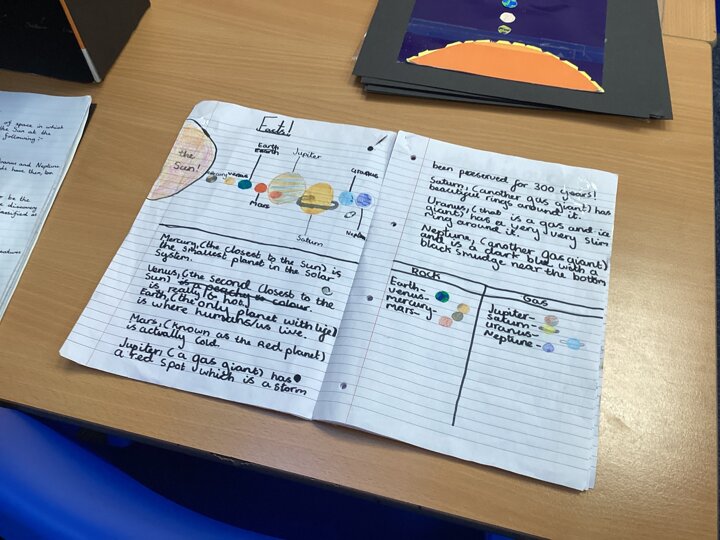 of space in which
the Sun at the
following :-
Uranus and Neptune
be the
discovery
classified as
Facts!
the
Sun!
Mercury
Venus
Earth
Mars
Jupiter
Saturn
Uranus
Neptune
Mercury, (the closest to the Sun) is
the smallest planet in the Solar
System.
Venus, (the second closest to the
Sun) is a peachy colour.
is really hot.
Earth, (the only planet with life)
is where humans/us live.
Mars, (known as the Red planet)
is actually cold.
Jupiter, (a gas giant) has
a red spot which is a storm
been preserved for 300 years!
Saturn, (another gas giant) has
beautiful rings around it.
Uranus, (that is a gas and ice
giant) has a very, very slim
ring around it.
Neptune, (another gas giant)
and is a dark blue with a
black smudge near the bottom
Rock
Earth-
venus-
mercury-
mars-
Gas
Jupiter-
Saturn-
Uranus-
Neptune-